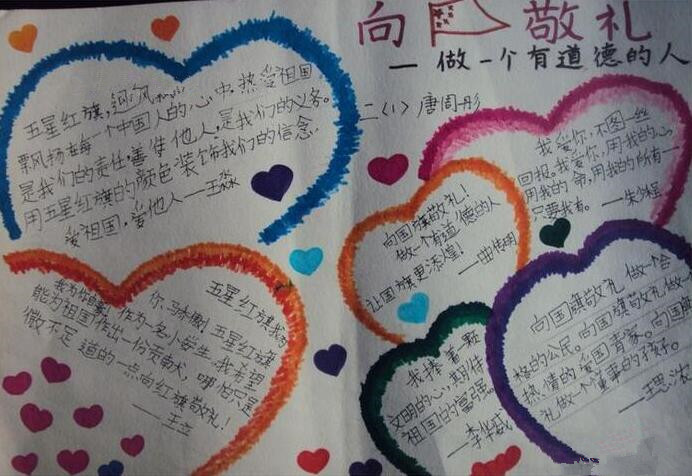 向 敬礼
—做一个有道德的人
二(1)唐周彤
五星红旗,迎风
飘扬在每一个中国人的心中.热爱祖国
是我们的责任,善待他人,是我们的义务。
用五星红旗的颜色装饰我们的信念.
爱祖国,爱他人——王淼
我爱你,不图一丝
回报。我爱你,用我的心
用我的命,用我的所有——
只要我有。
向国旗敬礼!
做一个有道德的人
让国旗更添煌!
五星红旗我为
你 骄傲! 五星红旗
我为你自豪! 作为一名小学生.我希望
能为祖国作出一份贡献,哪怕只是
微不足 道的一点向红旗敬礼!
——王立
我捧着
文明的心,期伴
祖国的富强
——李华威
向国旗敬礼 做一个合
格的公民.向国旗敬礼做一
热情的爱国青家.向国旗
礼做一个懂事的孩子。